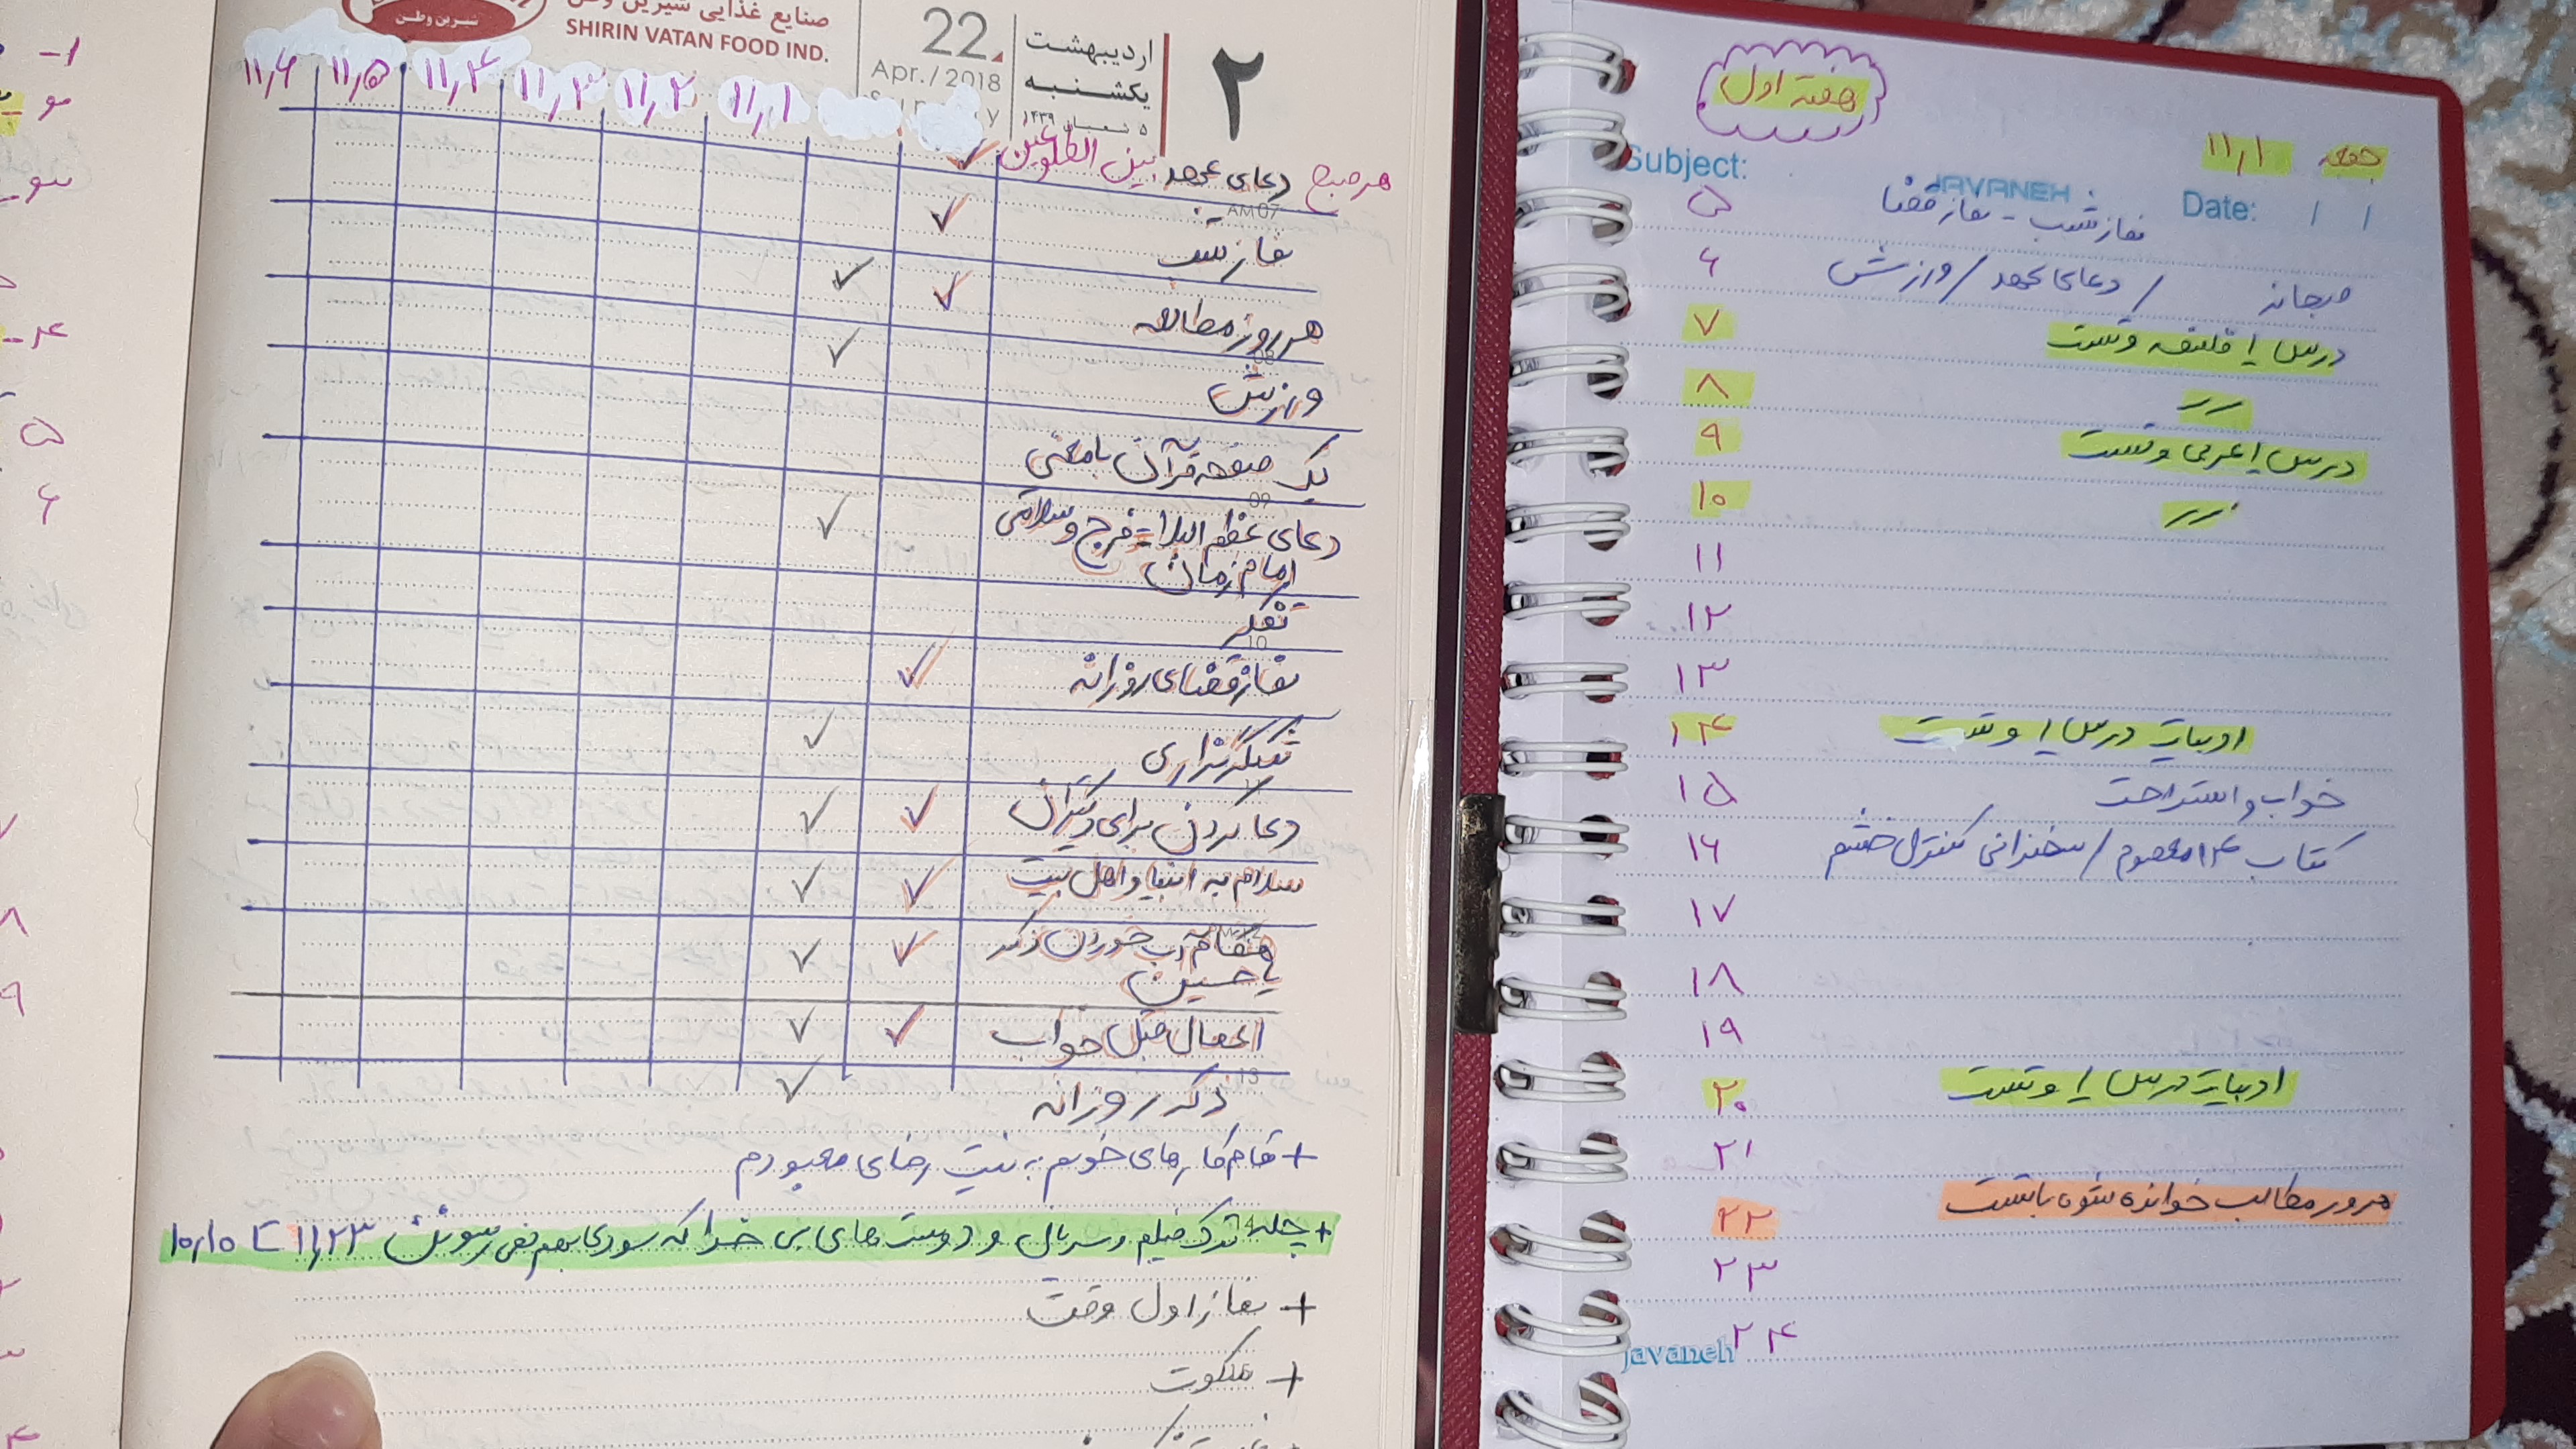 صنایع غذایی شیرین وطن
SHIRIN VATAN FOOD IND.
شیرین وطن
22
Apr./2018
اردیبهشت
یکشنبه
۵ شعبان ۱۴۳۹
۲
۱۱٫۶ ۱۱٫۵ ۱۱٫۴ ۱۱٫۳ ۱۱٫۲ ۱۱٫۱
هر صبح دعای عهد بین الطلوعین
AM 07
نماز شب
هر روز مطالعه
08
ورزش
یک صفحه قرآن با معنی
09
دعای عظم البلا - فرج و سلامتی
امام زمان
تفکر
10
نماز قضای روزانه
شکرگزاری
دعا کردن برای دیگران
سلام به انبیا و اهل بیت
هنگام آب خوردن ذکر
یا حسین
اعمال قبل خواب
13
ذکر روزانه
+ تمام کارهای خوبم به نیت رضای معبودم
+ چله ترک فیلم و سریال و دوست های بی خدا که سودی بهم نمی رسونن ۱۱٫۲۳ تا ۱۰٫۱۰
+ نماز اول وقت
+ ملکوت
هفته اول
جمعه ۱۱٫۱
Subject:
JAVANEH
Date: / /
۵ نماز شب - نماز قضا
۶ صبحانه / دعای عهد / ورزش
۷ درس ۱ فلسفه و تست
۸ 〃
۹ درس ۱ عربی و تست
۱۰ 〃
۱۱
۱۲
۱۳
۱۴ ادبیات درس ۱ و تست
۱۵ خواب و استراحت
۱۶ کتاب ۱۴ معصوم / سخنرانی کنترل خشم
۱۷
۱۸
۱۹
۲۰ ادبیات درس ۱ و تست
۲۱
۲۲ مرور مطالب خوانده شده با تست
۲۳
۲۴
javaneh
۱-
۵
۶
۷
۸
۹